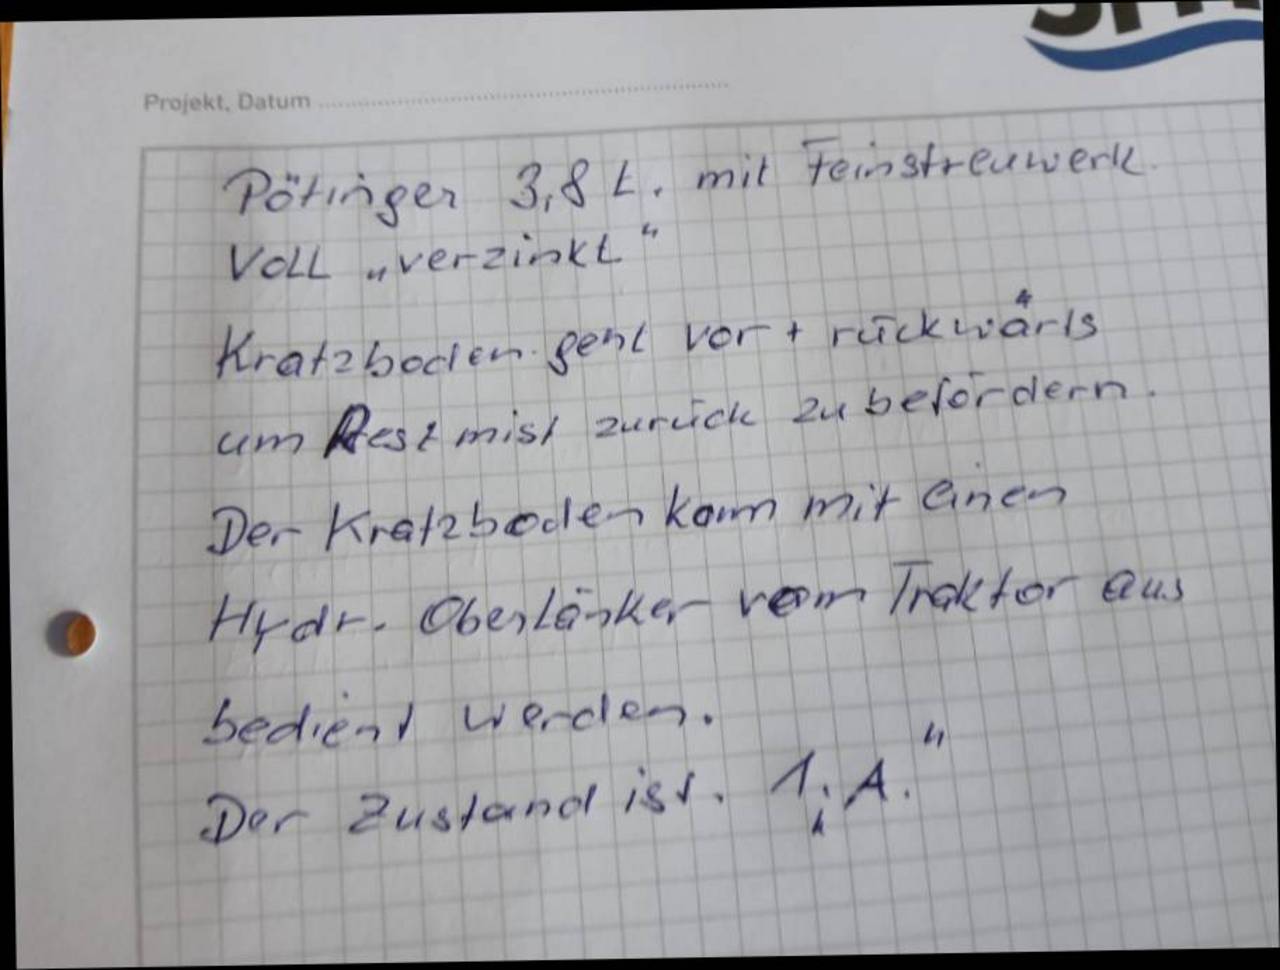 Projekt, Datum
Pötinger 3,8 t. mit Feinstreuwerk.
Voll „verzinkt"
Kratzboden geht vor + rückwärts
um Restmist zurück zu befördern.
Der Kratzboden kann mit einen
Hydr. Oberlänker vom Traktor aus
bedient werden.
Der Zustand ist. „1.A."